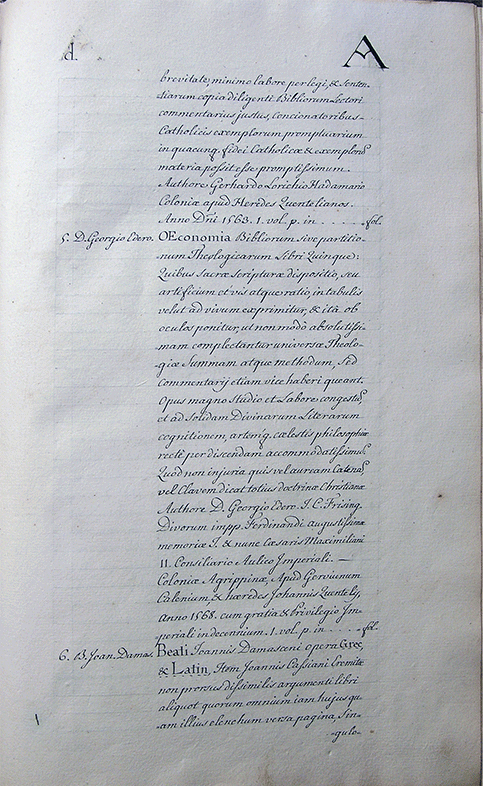 d. A
brevitate, minimo labore perlegi, & senten-
-tiarum copia diligenti Bibliorum Lectori
commentarius justus, concionatoribus-
Catholicis exemplorum promptuarium
in quacunq. fidei Catholicæ & exemplorū
materia possit esse promptissimum.
Authore Gerhardo Lorichio Hadamario
Coloniæ apud Heredes Quentelianos.
Anno Dñi 1563. 1. vol. p. in . . . . . fol.
5. D. Georgio Edero. OEconomia Bibliorum sive partitio-
num Theologicarum Libri Quinque:
Quibus sacræ scripturæ dispositio, seu
artificium et vis atque ratio, in tabulis
velut ad vivum exprimitur, & ità ob
oculos ponitur, ut non modò absolutissi-
mam complectantur universæ Theolo-
giæ Summam atque methodum, Sed
commentarij etiam vice haberi queant.
Opus magno studio et Labore congestū,
et ad solidam Divinarum Literarum
cognitionem, artemq. cælestis philosophiæ
rectè perdiscendam accommodatissimū.
Quod non injuria quis vel auream Catenā
vel Clavem dicat totius doctrinæ Christianæ
Authore D. Georgio Edero. I. C. Frising.
Divorum impp. Ferdinandi augustissimæ
memoriæ I. & nunc Cæsaris Maximiliani
II. Consiliario Aulico Imperiali.
Coloniæ Agrippinæ, Apud Gervinum
Calenium, & hæredes Johannis Quentelÿ,
Anno 1568. cum gratia & Privilegio Im-
periali in decennium. 1. vol. p. in . . . fol.
6. B. Joan. Damas. Beati Joannis Damasceni Opera Græc,
& Latin, Item Joannis Cassiani Eremitæ
non prorsus dissimilis argumenti libri
aliquot quorum omnium iam hujus qu-
am illius elenchum versa pagina, Sin-
-gulo-